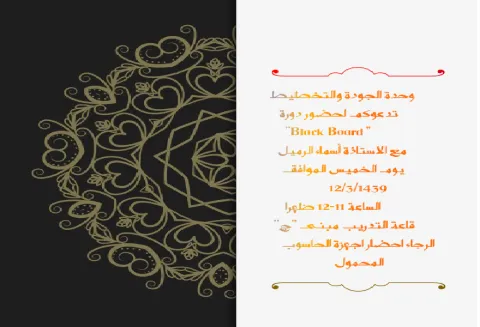 وحدة الجودة والتخطيط
تدعوكم لحضور دورة
"Black Board"
مع الاستاذة أسماء الرميل
يوم الخميس الموافق
12/3/1439
الساعة 11-12 ظهرا
قاعة التدريب مبنى "ج"
الرجاء احضار اجهزة الحاسوب
المحمول